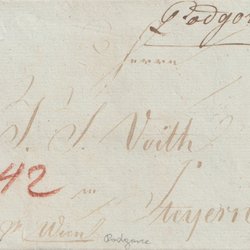 Podgor
Herrn
J. J. Voith
42 in
Steyern
Wien
Podgorze